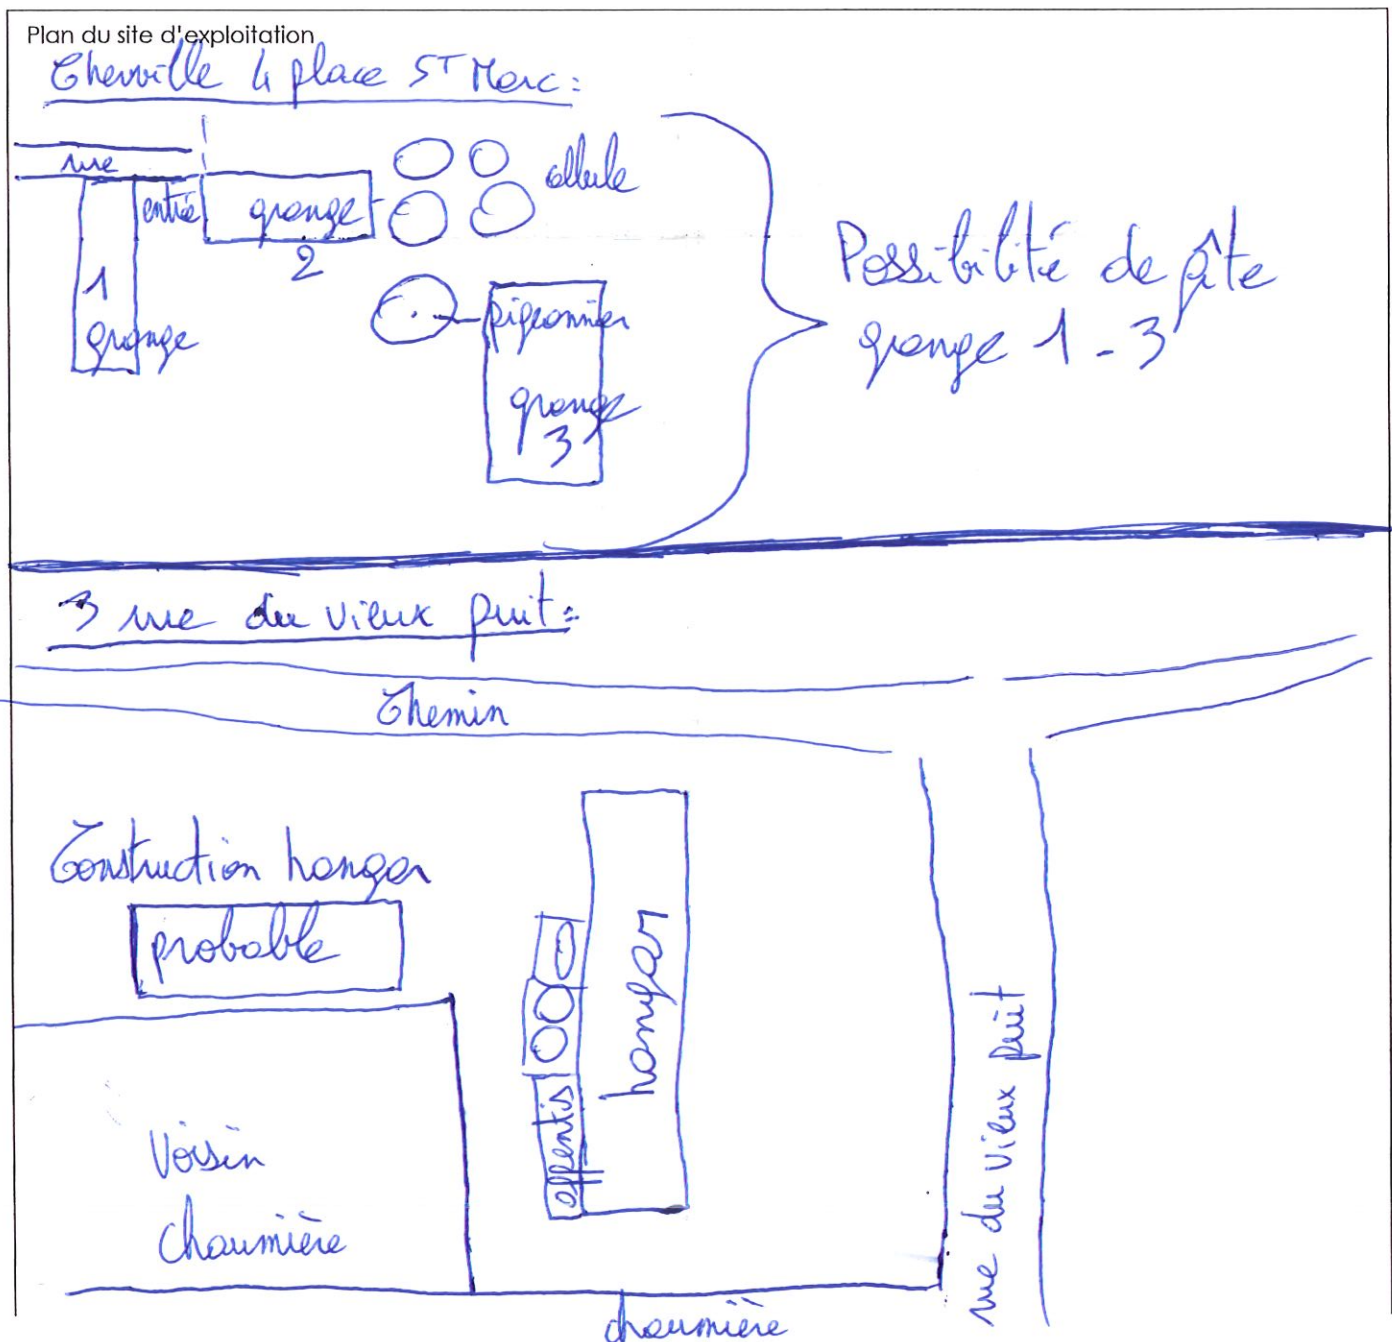 Plan du site d'exploitation
Cherville 4 place ST Marc :
rue
entrée
grange
2
1
grange
pigeonnier
grange
3
Possibilité de gîte
grange 1 - 3
3 rue du vieux puit :
Chemin
Construction hangar
probable
hangar
appentis
rue du vieux puit
Voisin
chaumière
chaumière